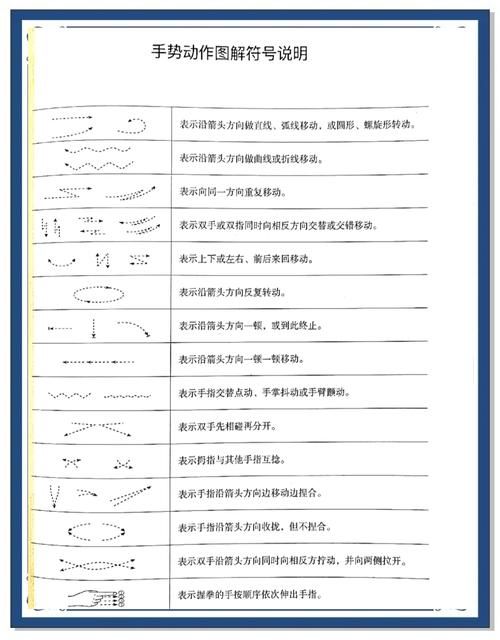 手势动作图解符号说明
表示沿箭头方向做直线、弧线移动，或圆形、螺旋形转动。
表示沿箭头方向做曲线或折线移动。
表示向同一方向重复移动。
表示双手或双指同时向相反方向交替或交错移动。
表示上下或左右、前后来回移动。
表示沿箭头方向反复转动。
表示沿箭头方向一顿，或到此终止。
表示沿箭头方向一顿一顿移动。
表示手指交替点动、手掌抖动或手臂颤动。
表示双手先相碰再分开。
表示拇指与其他手指互捻。
表示手指沿箭头方向边移动边捏合。
表示手指沿箭头方向收拢，但不捏合。
表示双手沿箭头方向同时向相反方拧动，并向两侧拉开。
表示握拳的手按顺序依次伸出手指。